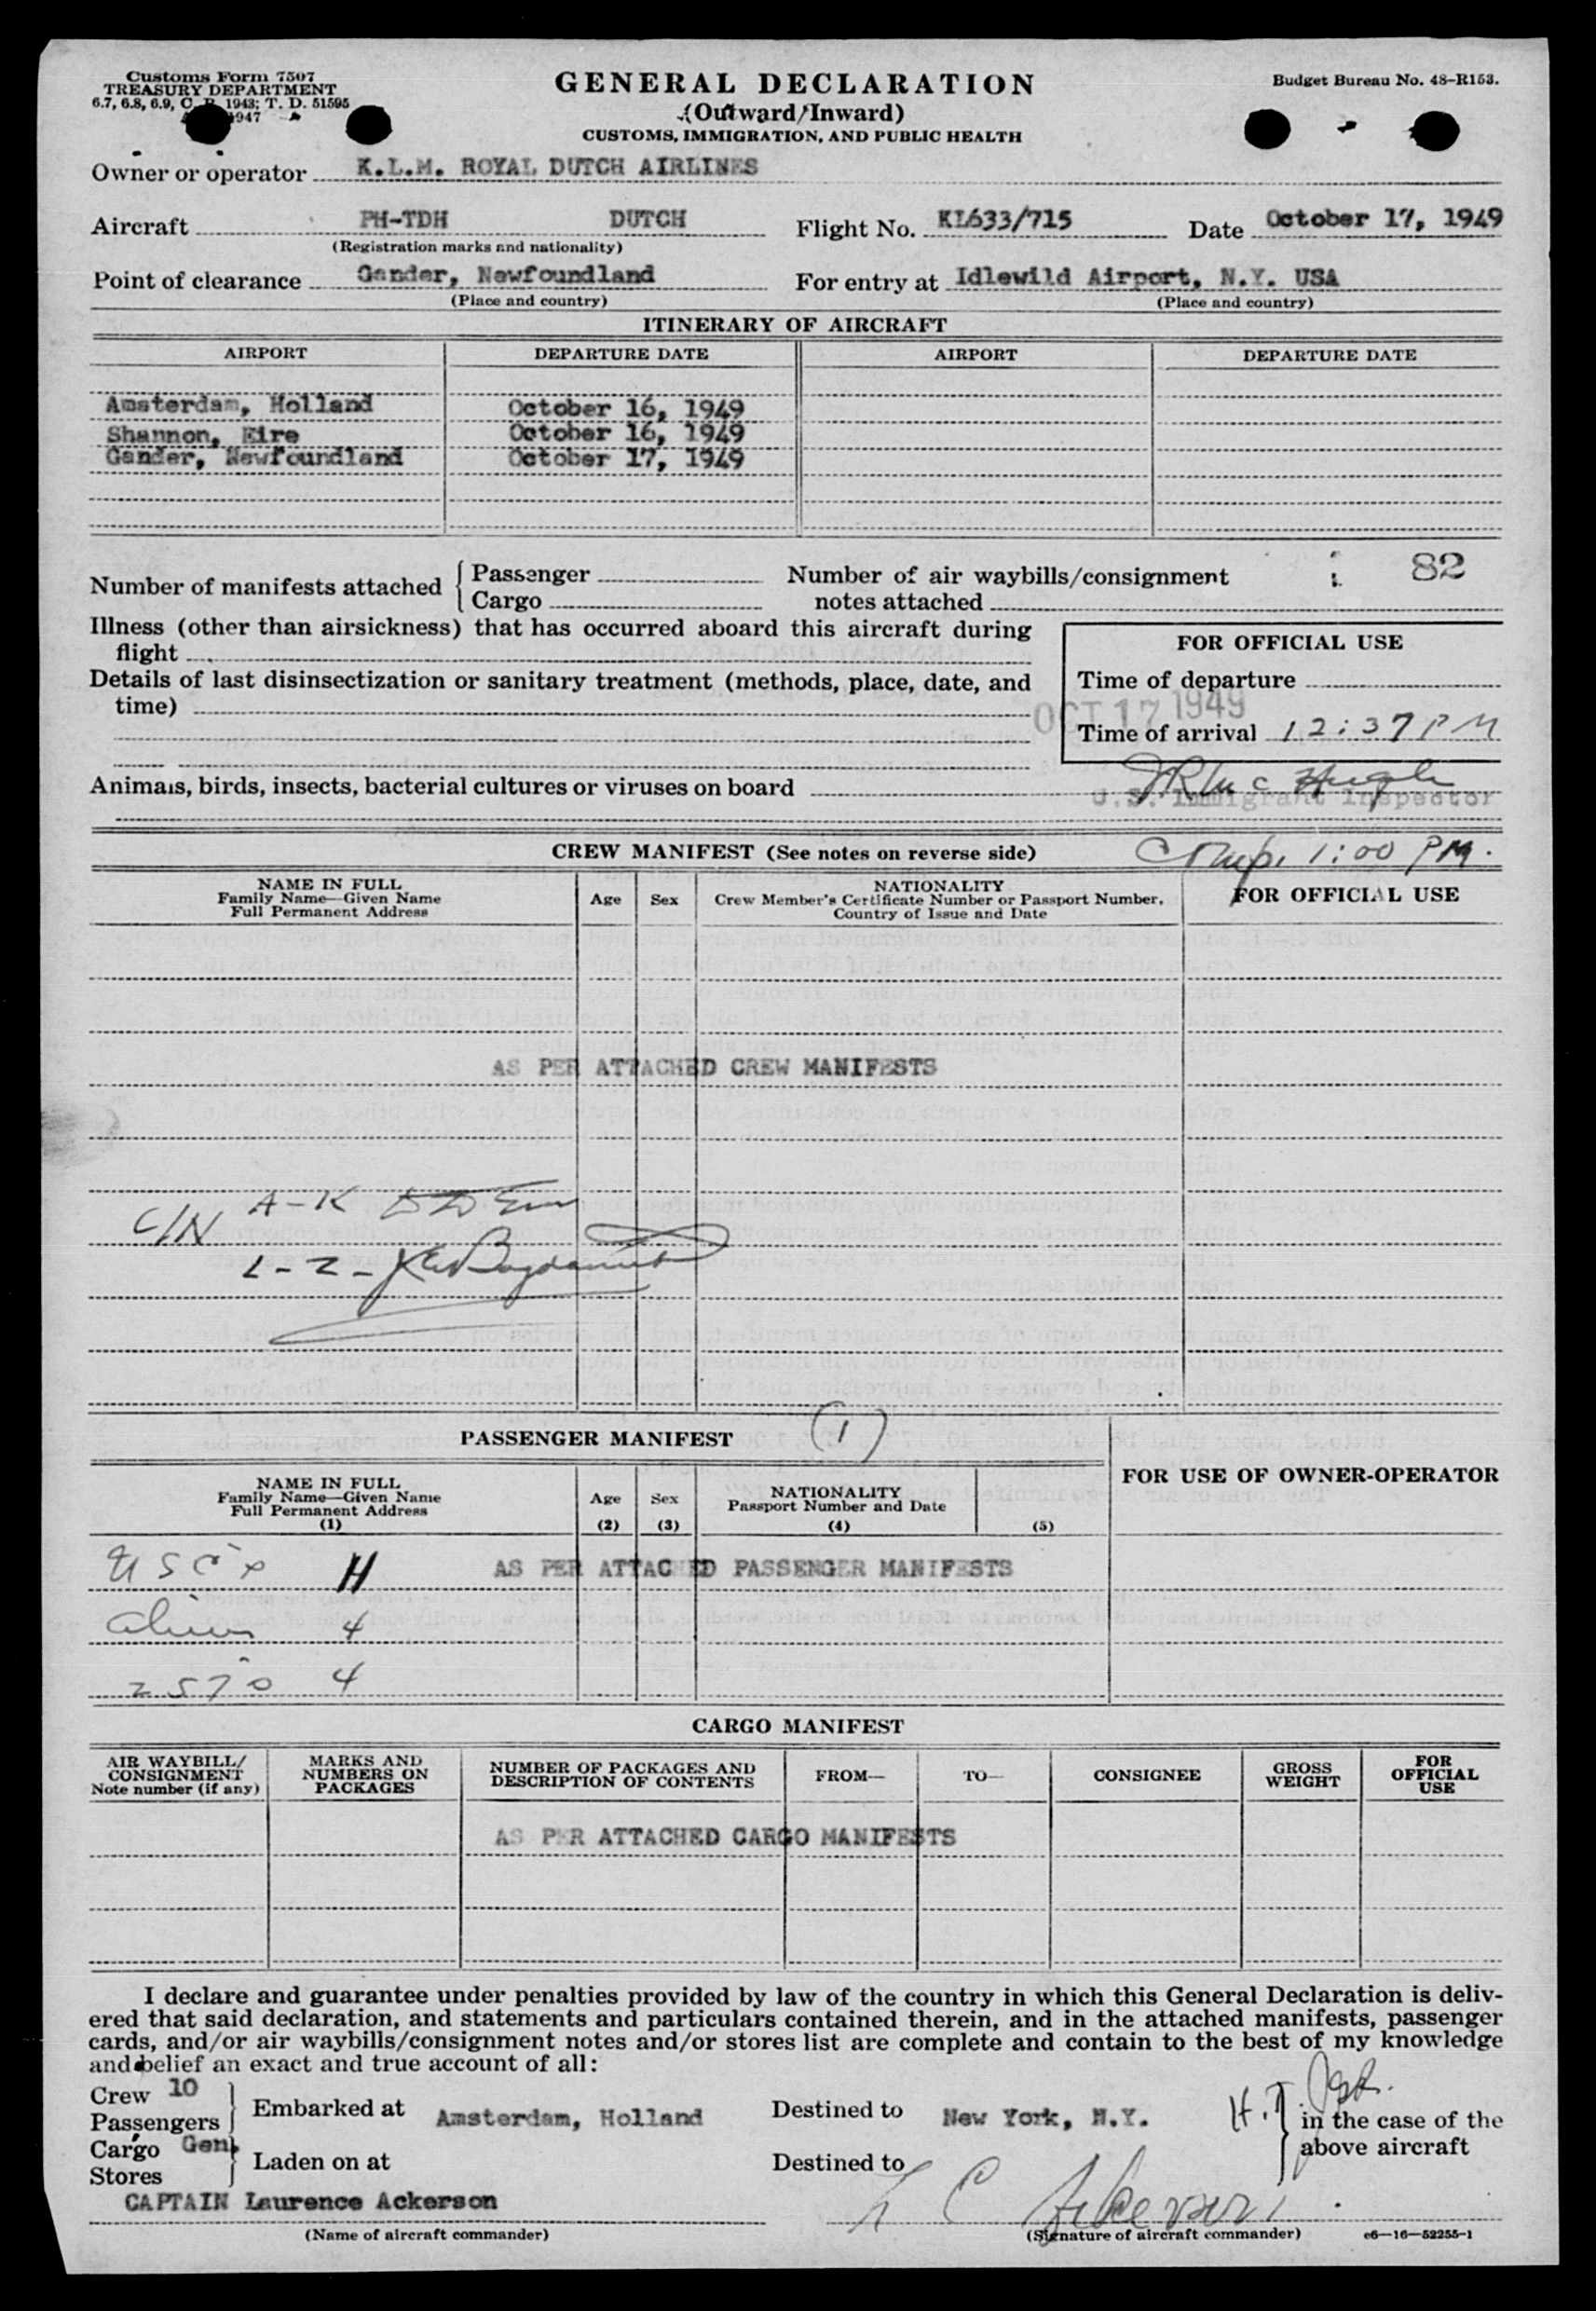 Customs Form 7507
TREASURY DEPARTMENT
6.7, 6.8, 6.9, C. R. 1943; T. D. 51595
1947
GENERAL DECLARATION
(Outward/Inward)
CUSTOMS, IMMIGRATION, AND PUBLIC HEALTH
Budget Bureau No. 48–R153.
Owner or operator K.L.M. ROYAL DUTCH AIRLINES
Aircraft PH-TDH DUTCH Flight No. KL633/715 Date October 17, 1949
(Registration marks and nationality)
Point of clearance Gander, Newfoundland For entry at Idlewild Airport, N.Y. USA
(Place and country) (Place and country)
ITINERARY OF AIRCRAFT
AIRPORT DEPARTURE DATE AIRPORT DEPARTURE DATE
Amsterdam, Holland October 16, 1949
Shannon, Eire October 16, 1949
Gander, Newfoundland October 17, 1949
82
Number of manifests attached { Passenger Number of air waybills/consignment
Cargo notes attached
Illness (other than airsickness) that has occurred aboard this aircraft during
flight
Details of last disinsectization or sanitary treatment (methods, place, date, and
time)
FOR OFFICIAL USE
Time of departure
OCT 17 1949
Time of arrival 12:37 PM
Animals, birds, insects, bacterial cultures or viruses on board
U.S. Immigrant Inspector
CREW MANIFEST (See notes on reverse side)
Comp. 1:00 PM.
NAME IN FULL
Family Name—Given Name
Full Permanent Address
Age Sex
NATIONALITY
Crew Member's Certificate Number or Passport Number,
Country of Issue and Date
FOR OFFICIAL USE
AS PER ATTACHED CREW MANIFESTS
C/N A-K
L-Z-
PASSENGER MANIFEST (1)
NAME IN FULL
Family Name—Given Name
Full Permanent Address
(1)
Age
(2)
Sex
(3)
NATIONALITY
Passport Number and Date
(4) (5)
FOR USE OF OWNER-OPERATOR
H AS PER ATTACHED PASSENGER MANIFESTS
Aliens 4
4
CARGO MANIFEST
AIR WAYBILL/
CONSIGNMENT
Note number (if any)
MARKS AND
NUMBERS ON
PACKAGES
NUMBER OF PACKAGES AND
DESCRIPTION OF CONTENTS
FROM— TO— CONSIGNEE
GROSS
WEIGHT
FOR
OFFICIAL
USE
AS PER ATTACHED CARGO MANIFESTS
I declare and guarantee under penalties provided by law of the country in which this General Declaration is deliv-
ered that said declaration, and statements and particulars contained therein, and in the attached manifests, passenger
cards, and/or air waybills/consignment notes and/or stores list are complete and contain to the best of my knowledge
and belief an exact and true account of all:
Crew 10
Passengers } Embarked at Amsterdam, Holland Destined to New York, N.Y. } in the case of the
Cargo Gen. above aircraft
Stores } Laden on at Destined to
CAPTAIN Laurence Ackerson
(Name of aircraft commander) (Signature of aircraft commander) c6—16—52255-1